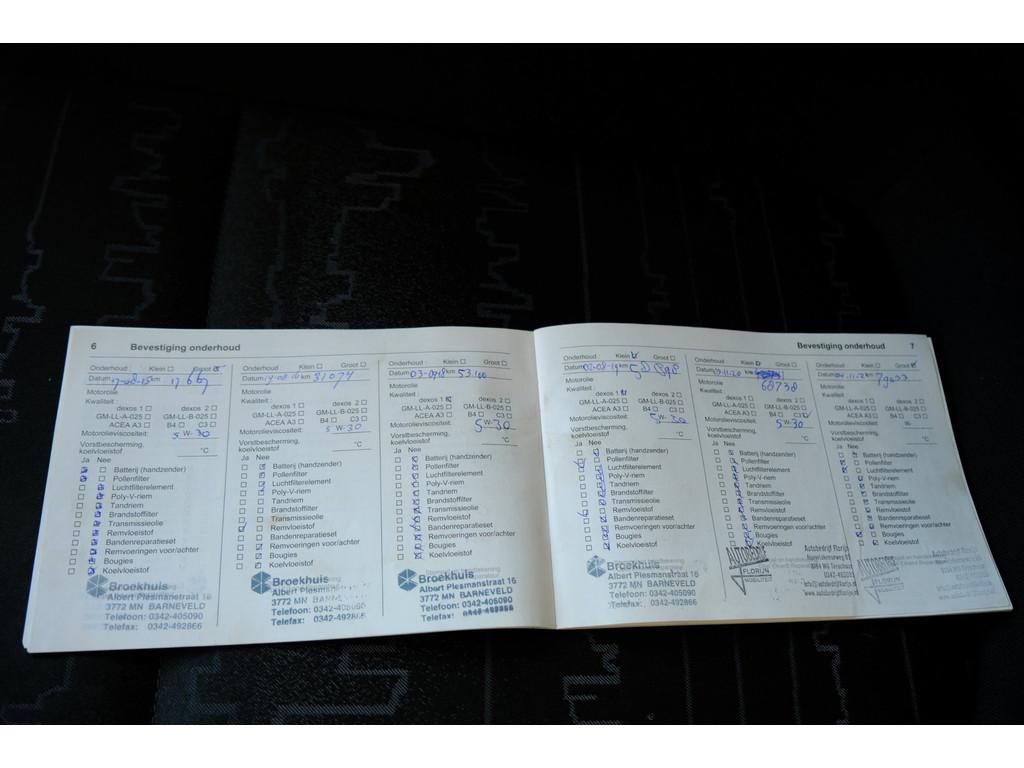 6 Bevestiging onderhoud
Onderhoud : Klein Groot
Datum km
Motorolie
Kwaliteit :
dexos 1 dexos 2
GM-LL-A-025 GM-LL-B-025
ACEA A3 B4 C3
Motorolieviscositeit: 5 W- 30
Vorstbescherming,
koelvloeistof °C
Ja Nee
Batterij (handzender)
Pollenfilter
Luchtfilterelement
Poly-V-riem
Tandriem
Brandstoffilter
Transmissieolie
Remvloeistof
Bandenreparatieset
Remvoeringen voor/achter
Bougies
Koelvloeistof
Broekhuis
Albert Plesmanstraat 16
3772 MN BARNEVELD
Telefoon: 0342-405090
Telefax: 0342-492866
Onderhoud : Klein Groot
Datum km 31074
Motorolie
Kwaliteit :
dexos 1 dexos 2
GM-LL-A-025 GM-LL-B-025
ACEA A3 B4 C3
Motorolieviscositeit: 5 W-30
Vorstbescherming,
koelvloeistof °C
Ja Nee
Batterij (handzender)
Pollenfilter
Luchtfilterelement
Poly-V-riem
Tandriem
Brandstoffilter
Transmissieolie
Remvloeistof
Bandenreparatieset
Remvoeringen voor/achter
Bougies
Koelvloeistof
Broekhuis
Albert Plesmanstraat
3772 MN
Telefoon: 0342-405090
Telefax: 0342-492866
Onderhoud : Klein Groot
Datum 03-09-18 km 53.100
Motorolie
Kwaliteit :
dexos 1 dexos 2
GM-LL-A-025 GM-LL-B-025
ACEA A3 B4 C3
Motorolieviscositeit: 5 W-30
Vorstbescherming,
koelvloeistof °C
Ja Nee
Batterij (handzender)
Pollenfilter
Luchtfilterelement
Poly-V-riem
Tandriem
Brandstoffilter
Transmissieolie
Remvloeistof
Bandenreparatieset
Remvoeringen voor/achter
Bougies
Koelvloeistof
Broekhuis
Albert Plesmanstraat 16
3772 MN BARNEVELD
Telefoon: 0342-405090
Telefax:
Bevestiging onderhoud 7
Onderhoud : Klein Groot
Datum km
Motorolie
Kwaliteit :
dexos 1 dexos 2
GM-LL-A-025 GM-LL-B-025
ACEA A3 B4 C3
Motorolieviscositeit: 5 W-30
Vorstbescherming,
koelvloeistof °C
Ja Nee
Batterij (handzender)
Pollenfilter
Luchtfilterelement
Poly-V-riem
Tandriem
Brandstoffilter
Transmissieolie
Remvloeistof
Bandenreparatieset
Remvoeringen voor/achter
Bougies
Koelvloeistof
Broekhuis
Albert Plesmanstraat 16
3772 MN
Telefoon: 0342-405090
Telefax: 0342-492866
Onderhoud : Klein Groot
Datum km
Motorolie 68730
Kwaliteit :
dexos 1 dexos 2
GM-LL-A-025 GM-LL-B-025
ACEA A3 B4 C3
Motorolieviscositeit: 5 W-30
Vorstbescherming,
koelvloeistof °C
Ja Nee
Batterij (handzender)
Pollenfilter
Luchtfilterelement
Poly-V-riem
Tandriem
Brandstoffilter
Transmissieolie
Remvloeistof
Bandenreparatieset
Remvoeringen voor/achter
Bougies
Koelvloeistof
AUTOBEDRIJF
FLORIJN
MOBILITEIT
Autobedrijf Florijn
Onderhoud : Klein Groot
Datum km
Motorolie
Kwaliteit :
dexos 1 dexos 2
GM-LL-A-025 GM-LL-B-025
ACEA A3 B4 C3
Motorolieviscositeit: W-
Vorstbescherming,
koelvloeistof °C
Ja Nee
Batterij (handzender)
Pollenfilter
Luchtfilterelement
Poly-V-riem
Tandriem
Brandstoffilter
Transmissieolie
Remvloeistof
Bandenreparatieset
Remvoeringen voor/achter
Bougies
Koelvloeistof
FLORIJN